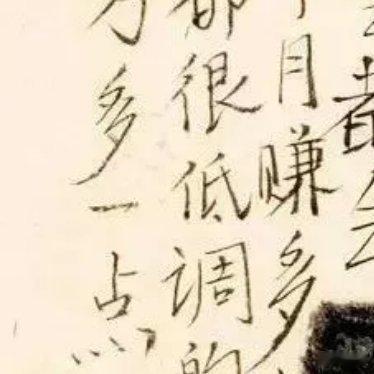 都会
月赚多
都很低调的
多一点